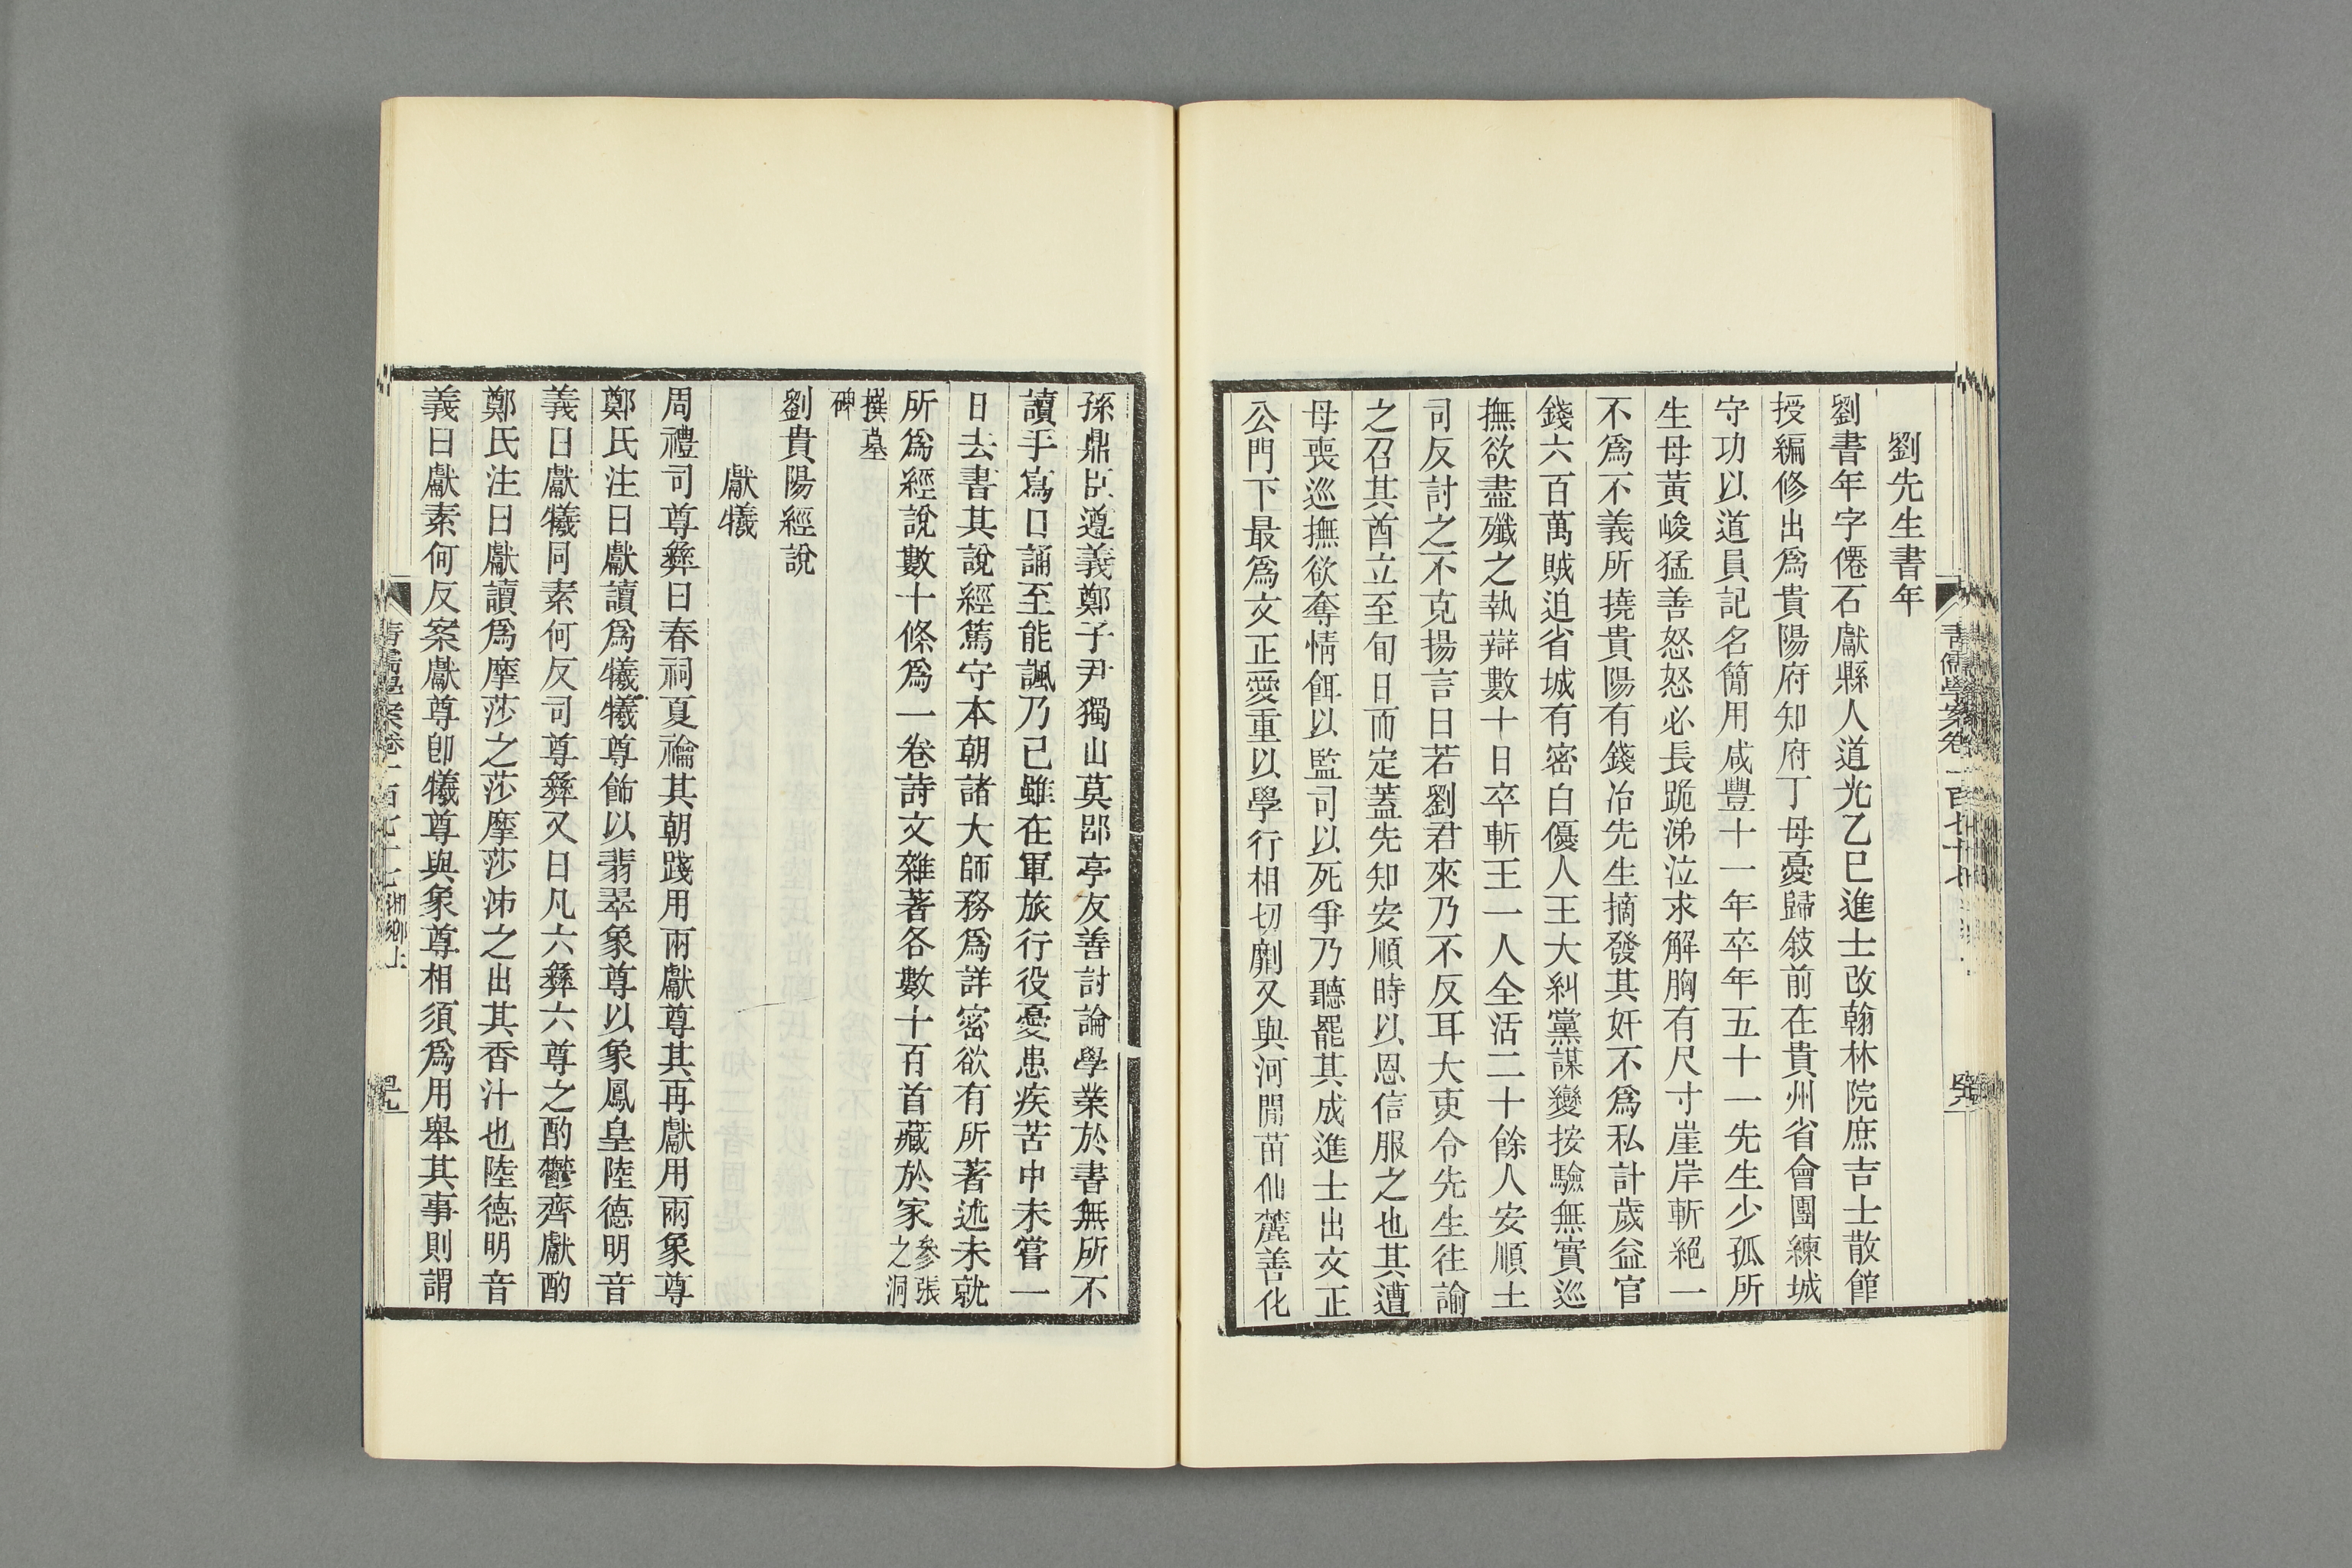 劉先生書年
劉書年字僊石獻縣人道光乙巳進士改翰林院庶吉士散館
授編修出爲貴陽府知府丁母憂歸敍前在貴州省會團練城
守功以道員記名簡用咸豐十一年卒年五十一先生少孤所
生母黃峻猛善怒怒必長跪涕泣求解胸有尺寸崖岸斬絕一
不爲不義所撓貴陽有錢冶先生摘發其奸不爲私計歲益官
錢六百萬賊迫省城有密白優人王大糾黨謀變按驗無實巡
撫欲盡殲之執辯數十日卒斬王一人全活二十餘人安順土
司反討之不克揚言曰若劉君來乃不反耳大吏令先生往諭
之召其酋立至旬日而定蓋先知安順時以恩信服之也其遭
母喪巡撫欲奪情餌以監司以死爭乃聽罷其成進士出文正
公門下最爲文正愛重以學行相切劘又與河閒苗仙麓善化
孫鼎臣遵義鄭子尹獨山莫郘亭友善討論學業於書無所不
讀手寫口誦至能諷乃已雖在軍旅行役憂患疾苦中未嘗一
日去書其說經篤守本朝諸大師務爲詳密欲有所著述未就
所爲經說數十條爲一卷詩文雜著各數十百首藏於家參張之洞
撰墓碑
劉貴陽經說
獻犧
周禮司尊彝曰春祠夏禴其朝踐用兩獻尊其再獻用兩象尊
鄭氏注曰獻讀爲犧犧尊飾以翡翠象尊以象鳳皇陸德明音
義曰獻犧同素何反司尊彝又曰凡六彝六尊之酌鬱齊獻酌
鄭氏注曰獻讀爲摩莎之莎摩莎泲之出其香汁也陸德明音
義曰獻素何反案獻尊卽犧尊與象尊相須爲用舉其事則謂
清儒學案卷一百七十七 湘鄉上